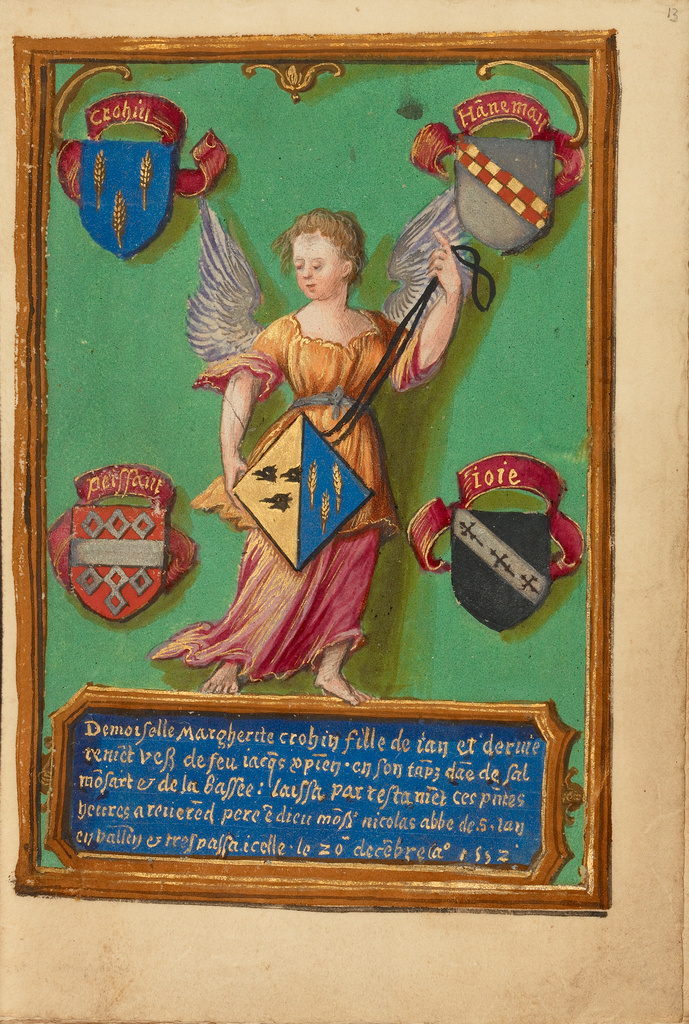 13
Crohin
Hãneman
perssant
ioie
Demoiselle Margherite crohin fille de ian et dernie
remẽt veſ3 de feu iacq̃s xpiẽn · en son tãps dãe de sal
mõsart & de la bassee : laissa par testamẽt ces pñtes
heures a reverẽd pere ẽ dieu mõs3 nicolas abbe de · s · ian
en vallẽn & trespassa · icelle · le 20 decẽbre